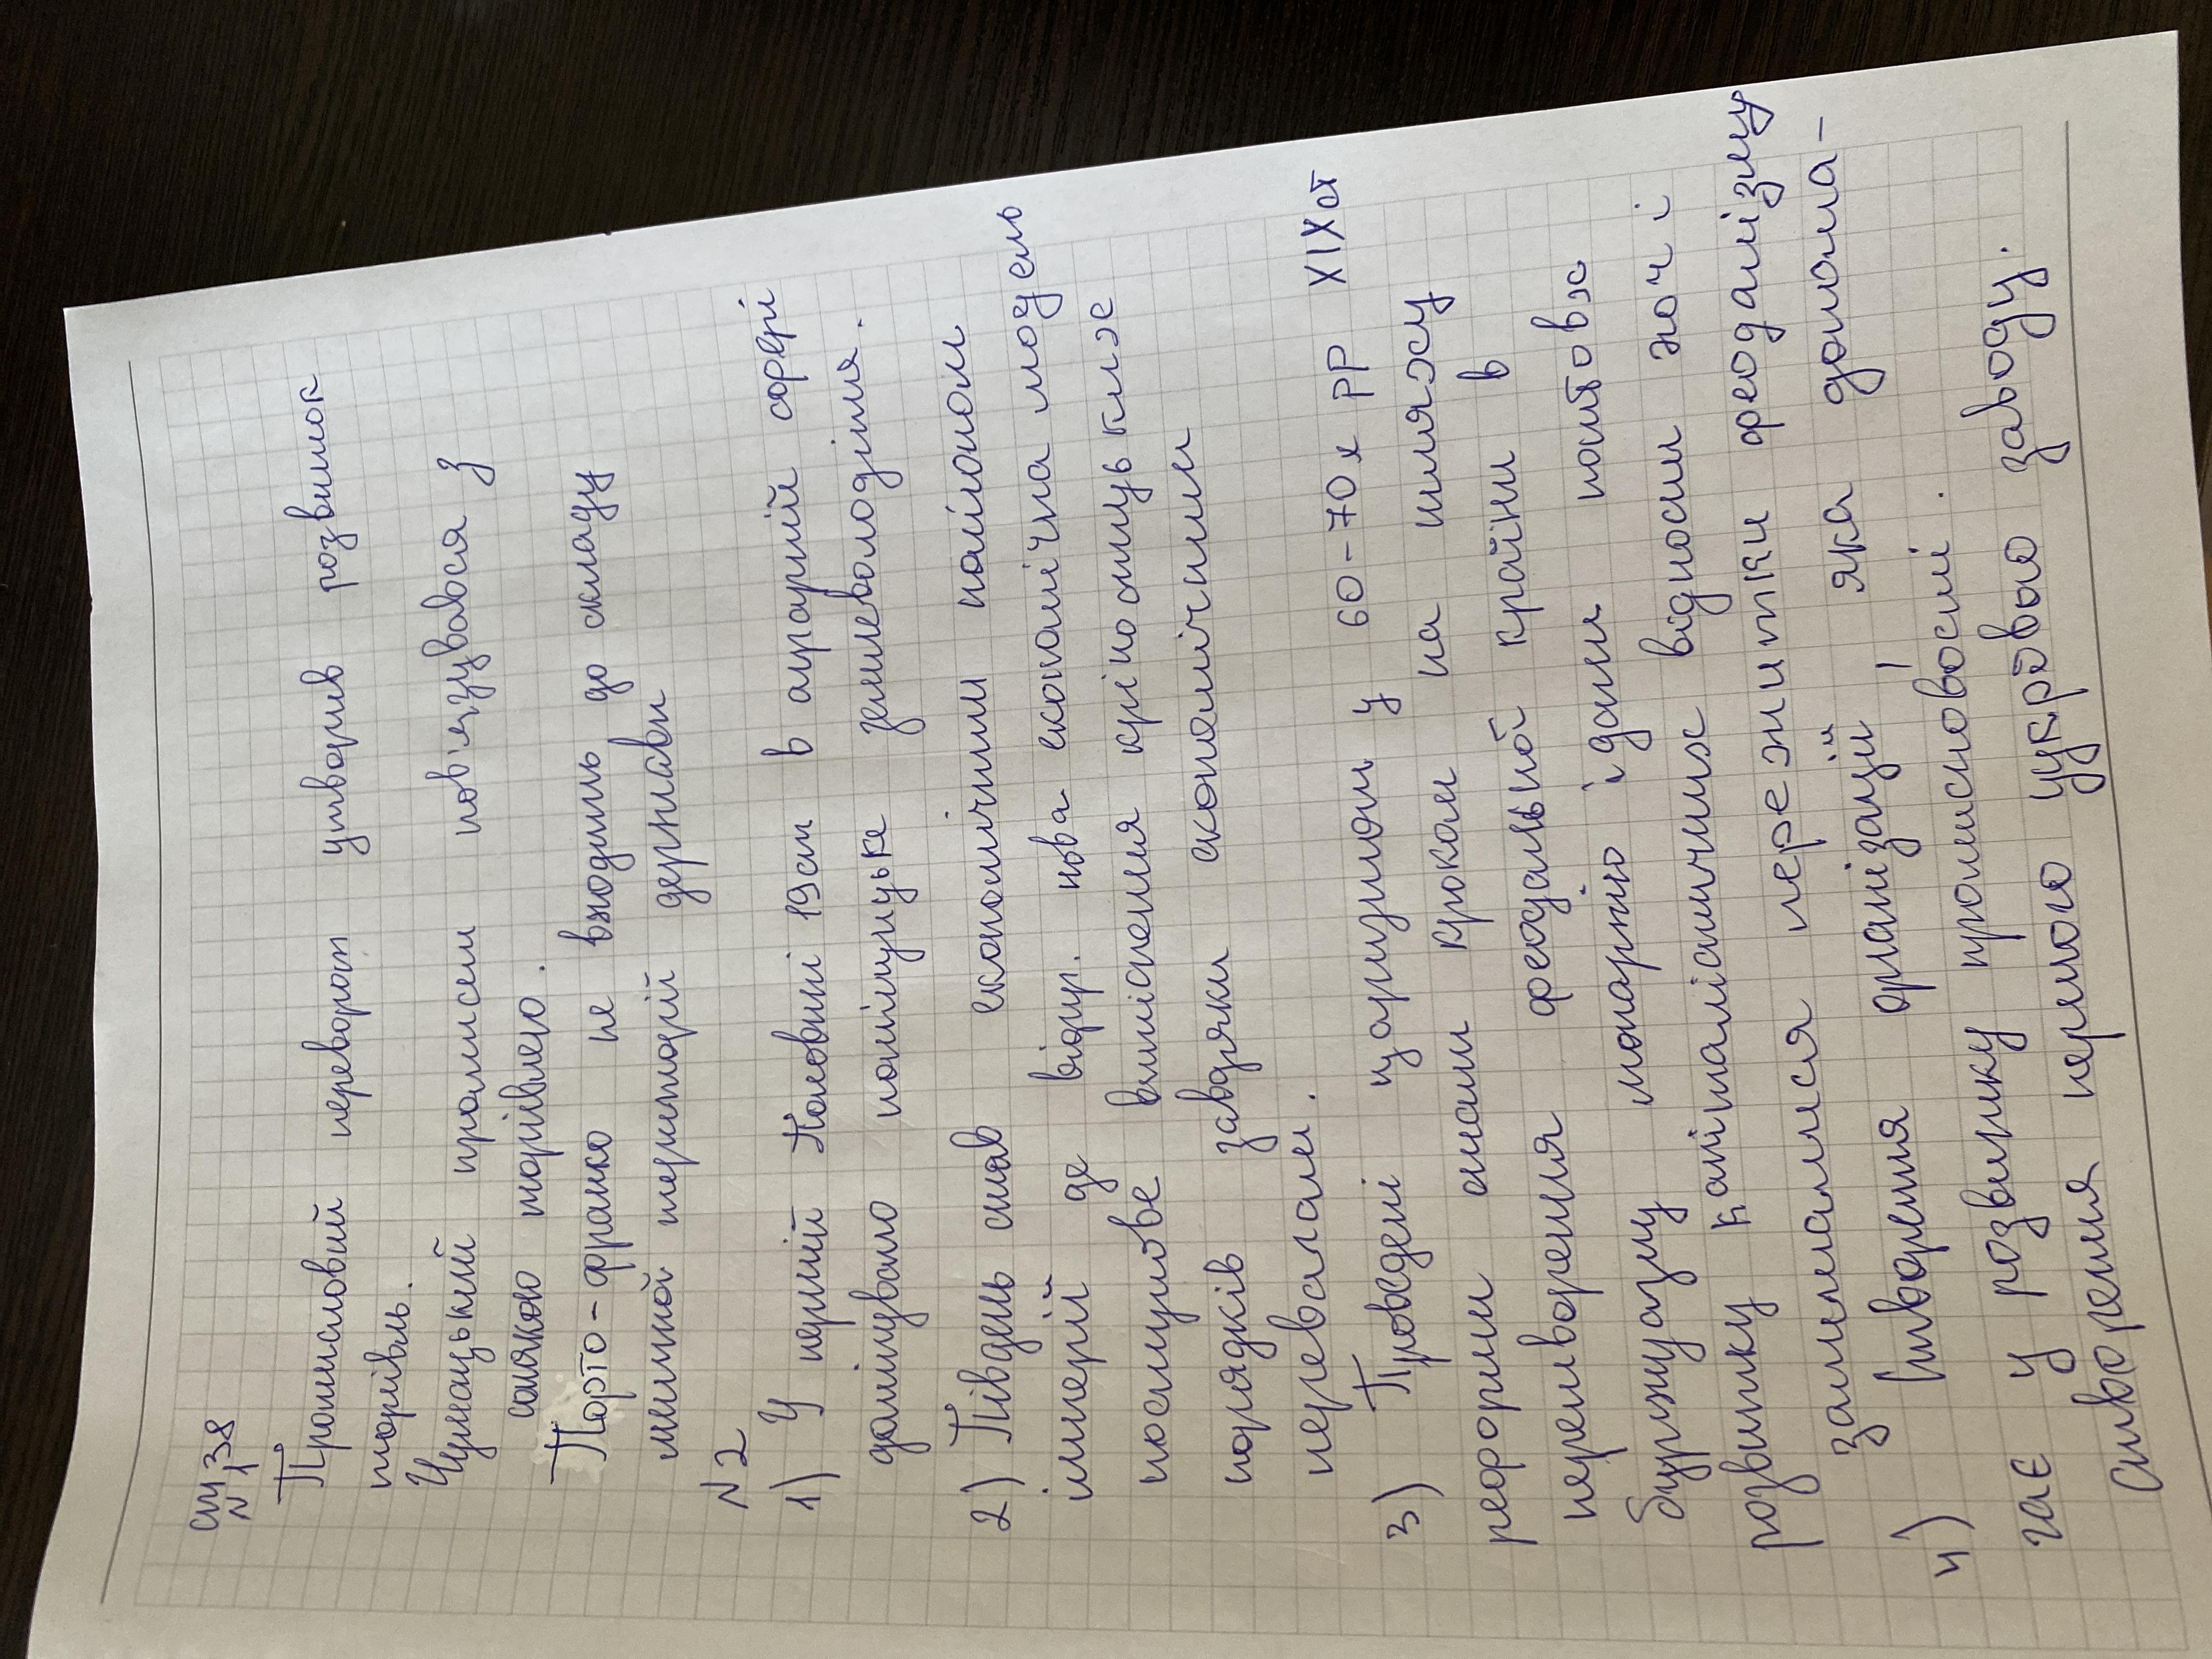 ст 38
N 1
Промисловий переворот утворив розвиток
торгівль.
Чумацький промисел пов'язувався з
сялкою торгівлею.
Порто-франко не входить до складу
митной територій держави
N 2
1) У першій половині 19 ст в аграрній сфері
домінувало поміщицьке землеволодіння.
2) Південь став економічним полігоном
імперій де відпр. нова економічна модель
поступове витіснення кріпосницькихе
порядків завдяки економічними
перевагам.
3) Проведені царизмом у 60-70х рр XIX ст
реформи стали кроком на шляху
перетворення феодальной країни в
буржуазну монархію і дали поштовх
розвитку капіталістичних відносин хоч і
залишалися пережитки феодалізму
4) Створення організацій яка допома-
гає у розвитку промисловості.
Створення першого цукрового заводу.